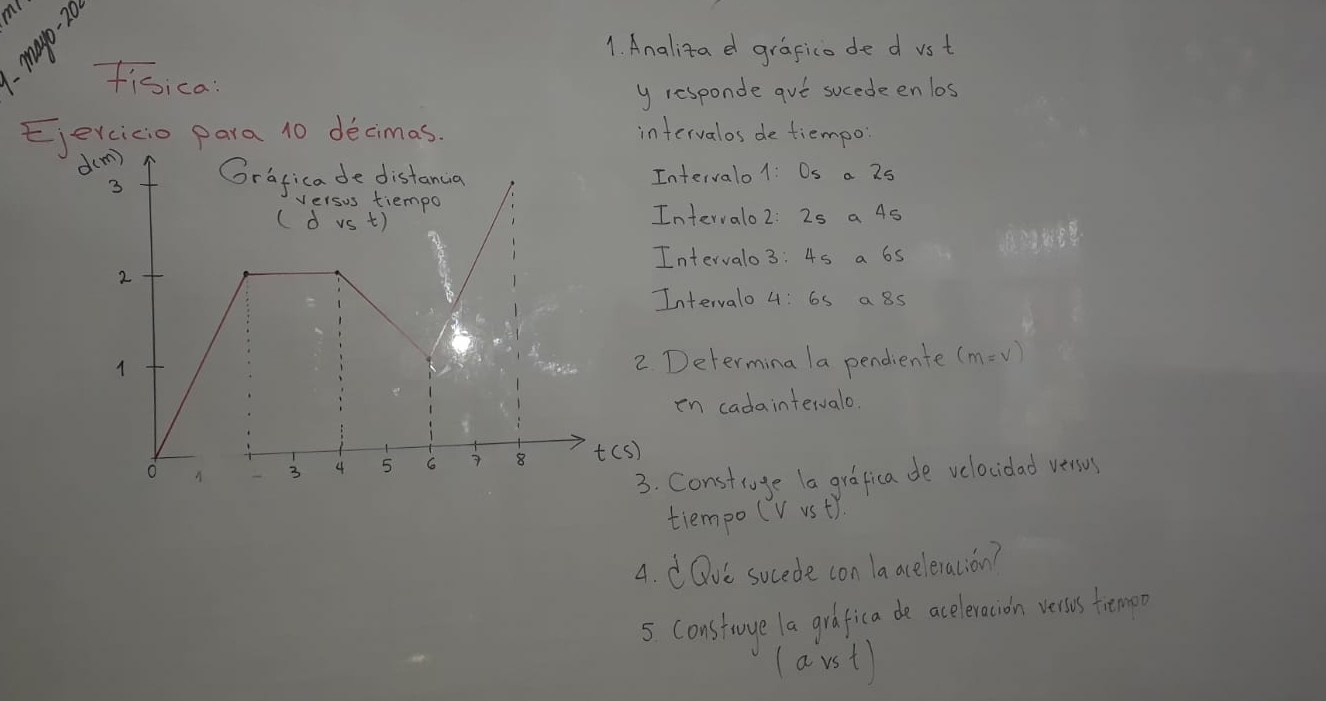 9-mayo-20
Física:
Ejercicio para 10 décimas.
Gráfica de distancia
versus tiempo
(d vs t)
d(m)
3
2
1
0 1 3 4 5 6 7 8
t(s)
1. Analiza el gráfico de d vs t
y responde qué sucede en los
intervalos de tiempo:
Intervalo 1: 0s a 2s
Intervalo 2: 2s a 4s
Intervalo 3: 4s a 6s
Intervalo 4: 6s a 8s
2. Determina la pendiente (m=v)
en cada intervalo.
3. Construye la gráfica de velocidad versus
tiempo (V vs t).
4. ¿Qué sucede con la aceleración?
5. Construye la gráfica de aceleración versus tiempo
(a vs t)